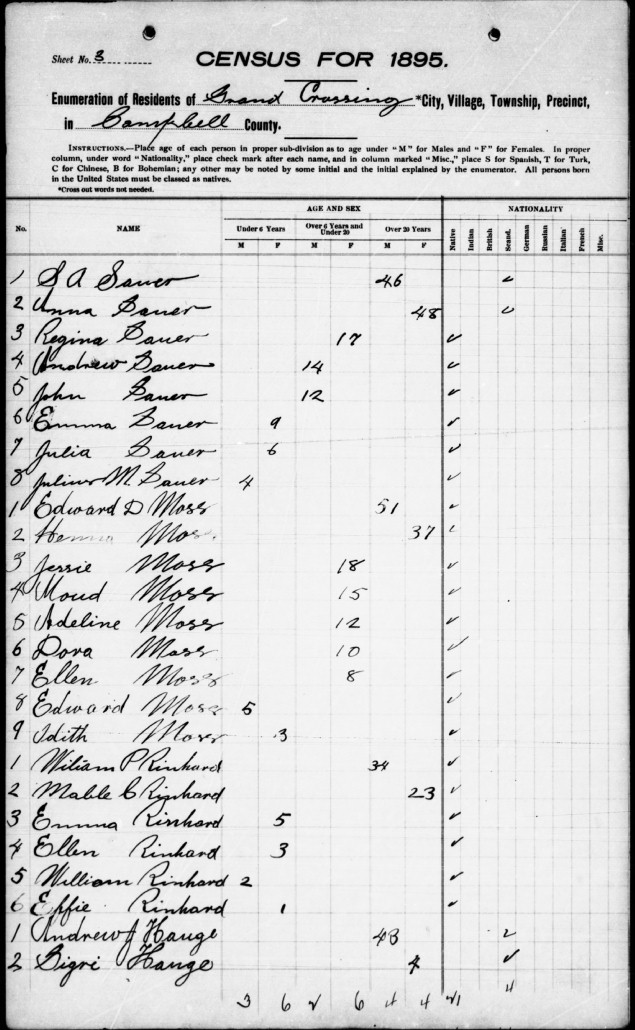 Sheet No. 3
CENSUS FOR 1895.
Enumeration of Residents of Grand Crossing *City, Village, Township, Precinct,
in Campbell County.
INSTRUCTIONS.—Place age of each person in proper sub-division as to age under "M" for Males and "F" for Females. In proper
column, under word "Nationality," place check mark after each name, and in column marked "Misc.," place S for Spanish, T for Turk,
C for Chinese, B for Bohemian; any other may be noted by some initial and the initial explained by the enumerator. All persons born
in the United States must be classed as natives.
*Cross out words not needed.
AGE AND SEX NATIONALITY
No. NAME Under 6 Years Over 6 Years and Under 20 Over 20 Years Native Indian British Scand. German Russian Italian French Misc.
M F M F M F
1 S A Sauer 46 ✓
2 Anna Sauer 48 ✓
3 Regina Sauer 17 ✓
4 Andrew Sauer 14 ✓
5 John Sauer 12 ✓
6 Emma Sauer 9 ✓
7 Julia Sauer 6 ✓
8 Julius M. Sauer 4 ✓
1 Edward D Moss 51 ✓
2 Moss 37 ✓
3 Jessie Moss 18 ✓
4 Moud Moss 15 ✓
5 Adeline Moss 12 ✓
6 Dora Moss 10 ✓
7 Ellen Moss 8 ✓
8 Edward Moss 5 ✓
9 Idith Moss 3 ✓
1 Wiliam P Rinhard 34 ✓
2 Mable C Rinhard 23 ✓
3 Emma Rinhard 5 ✓
4 Ellen Rinhard 3 ✓
5 William Rinhard 2 ✓
6 Effie Rinhard 1 ✓
1 Andrew J Hauge 43 ✓
2 Sigri Hauge ✓
3 6 2 6 4 4 21 4